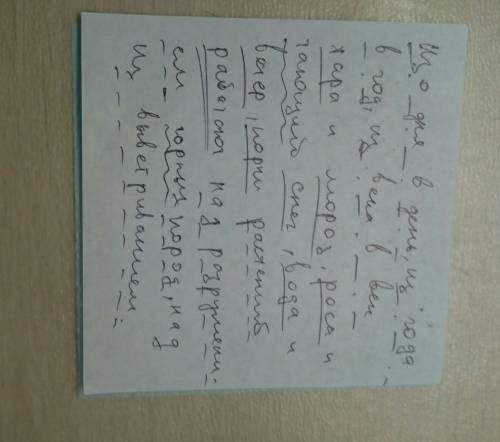 Изо дня в день, из года
в год, из века в век
жара и мороз, роса и
тающий снег, вода и
ветер, корни растений
работают над разрушени-
ем горных пород, над
из выветриванием.